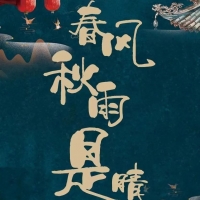 春风
秋雨
是晴